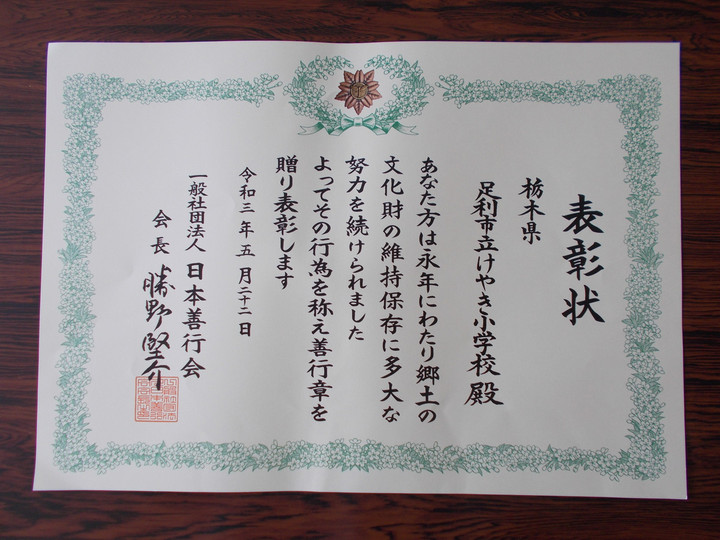 表彰状
栃木県
足利市立けやき小学校 殿
あなた方は永年にわたり郷土の
文化財の維持保存に多大な
努力を続けられました
よってその行為を称え善行章を
贈り表彰します
令和三年五月二十二日
一般社団法人 日本善行会
会長 勝野堅介